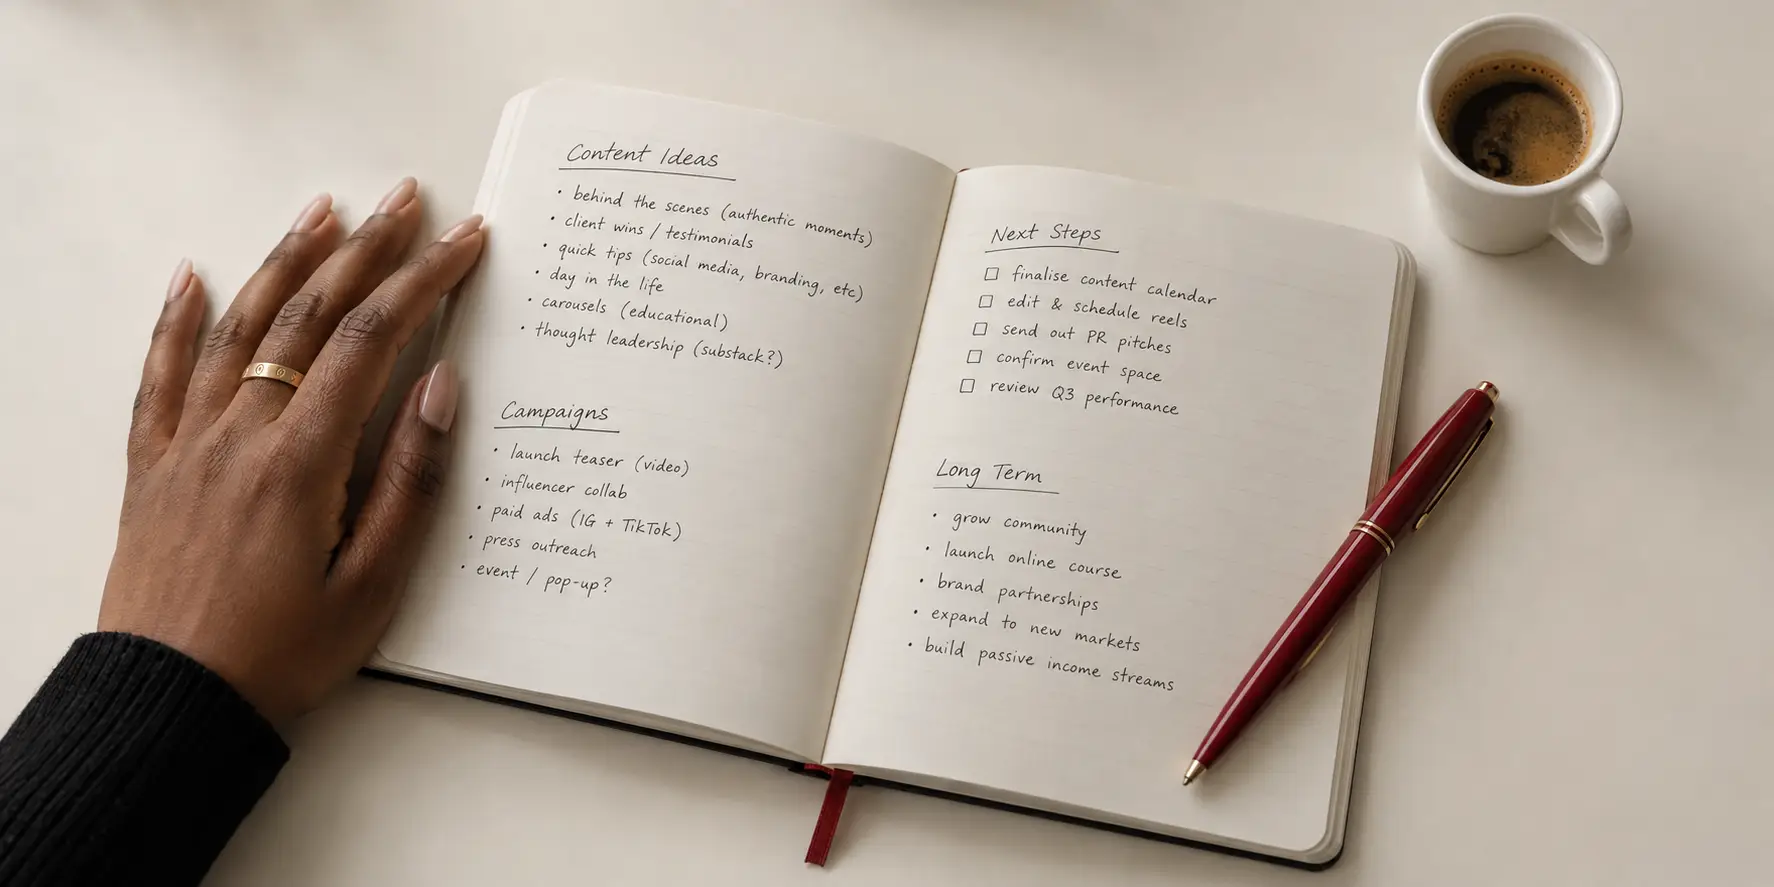 Content Ideas
• behind the scenes (authentic moments)
• client wins / testimonials
• quick tips (social media, branding, etc)
• day in the life
• carousels (educational)
• thought leadership (substack?)
Campaigns
• launch teaser (video)
• influencer collab
• paid ads (IG + TikTok)
• press outreach
• event / pop-up?
Next Steps
☐ finalise content calendar
☐ edit & schedule reels
☐ send out PR pitches
☐ confirm event space
☐ review Q3 performance
Long Term
• grow community
• launch online course
• brand partnerships
• expand to new markets
• build passive income streams